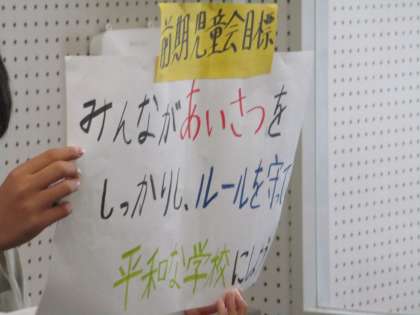 前期児童会目標
みんながあいさつを
しっかりし、ルールを守って
平和な学校に